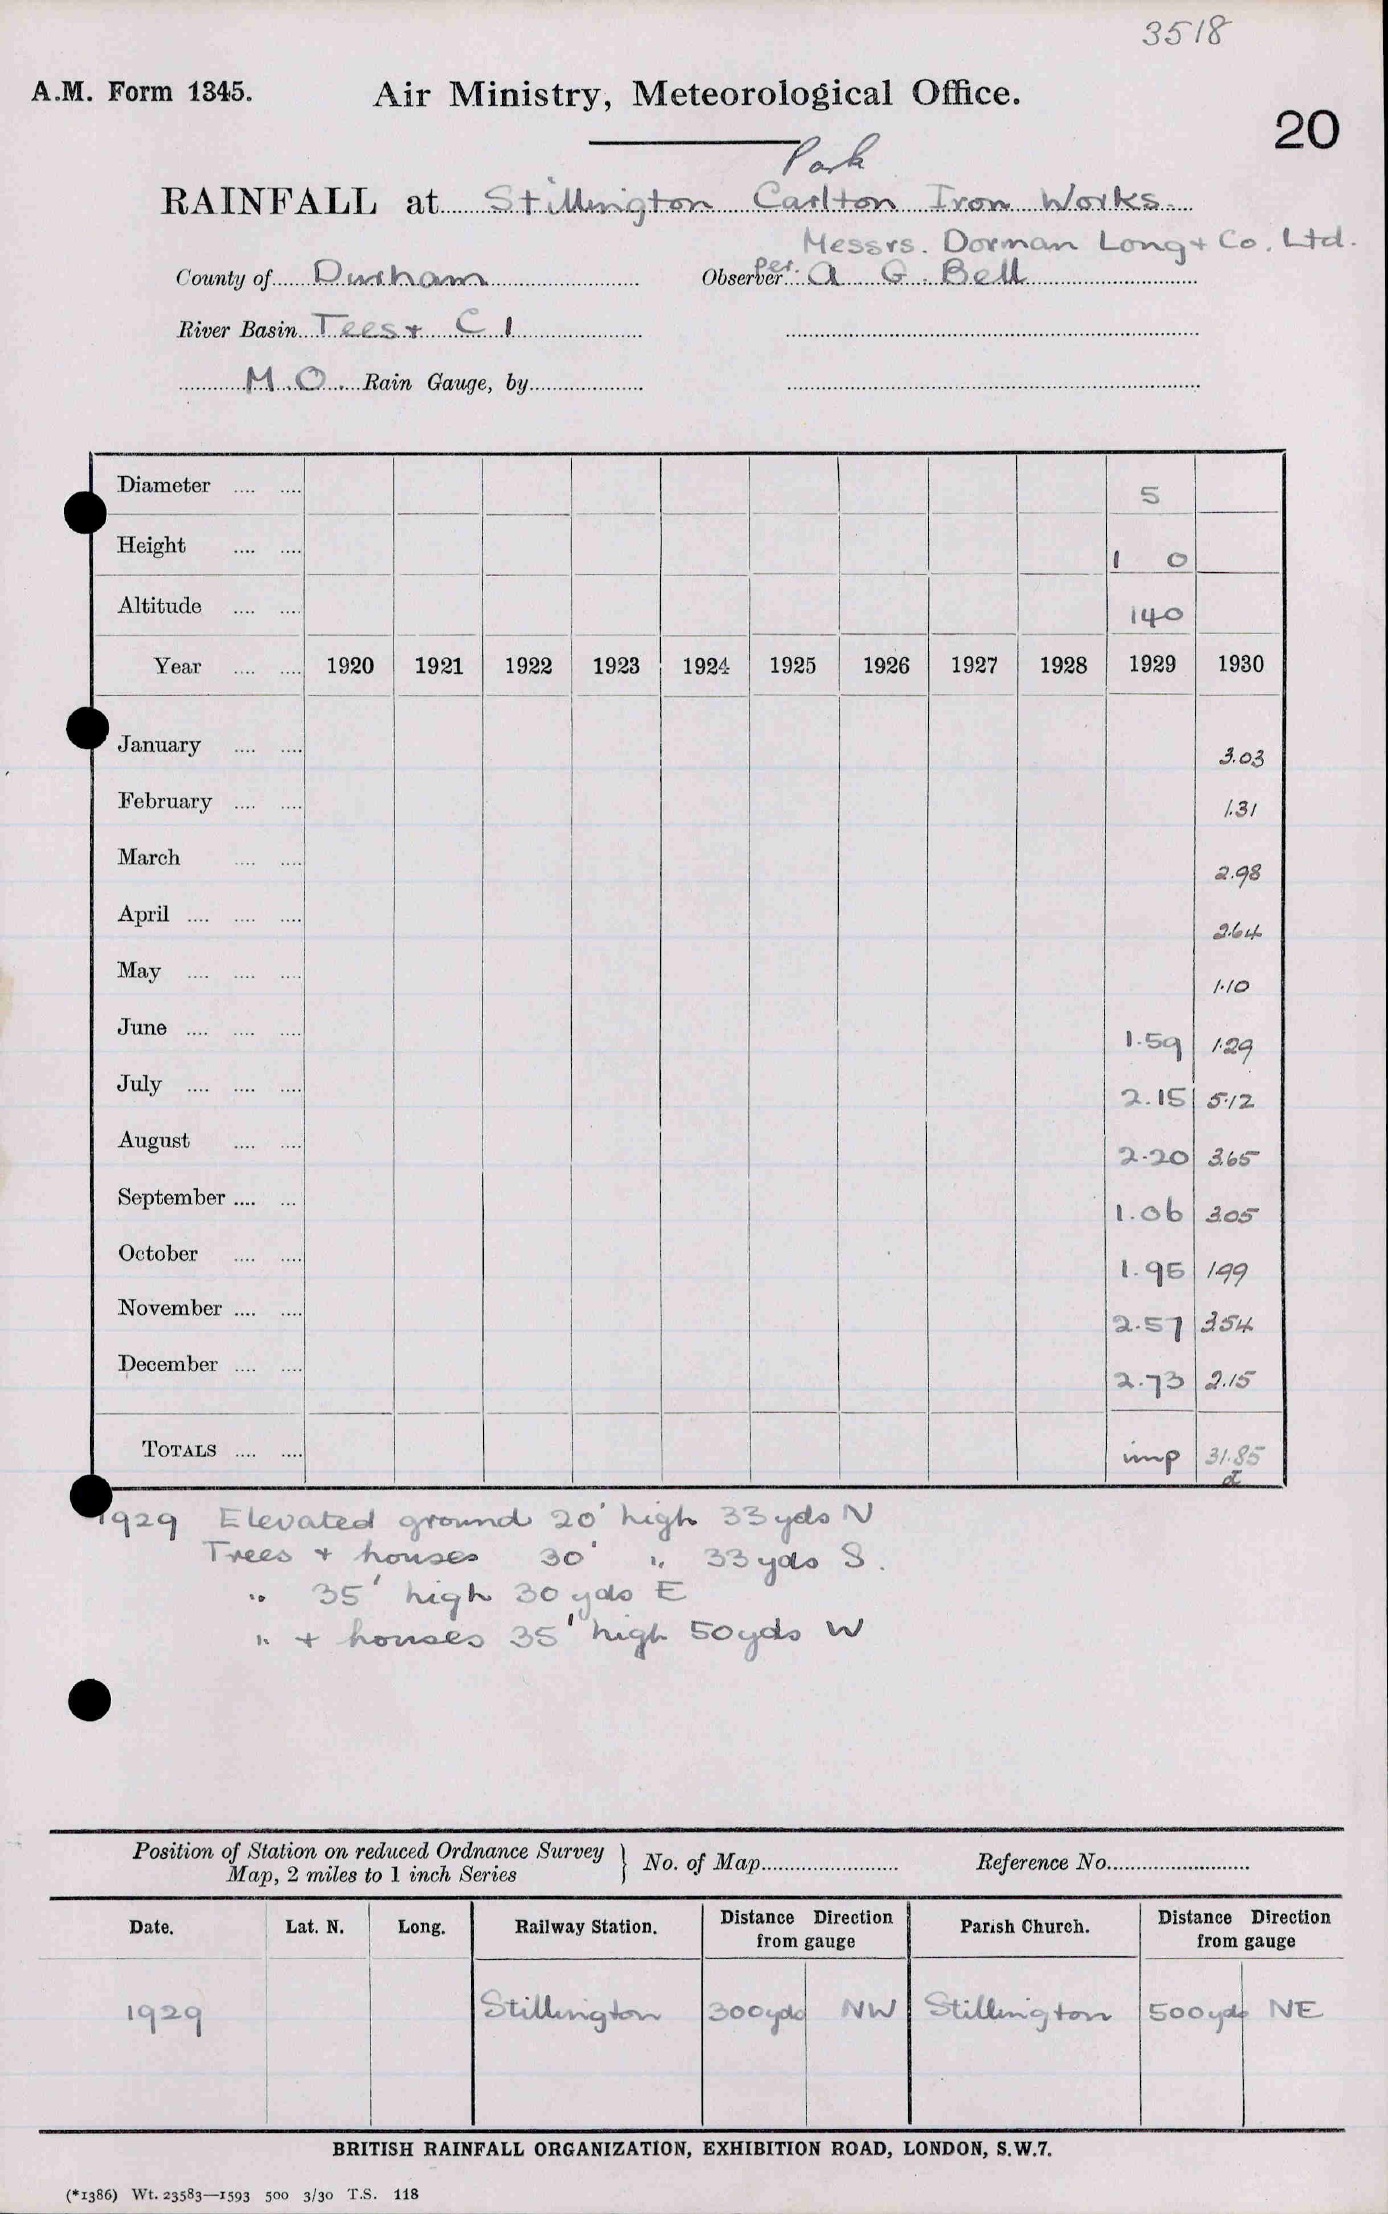 3518
A.M. Form 1345.
Air Ministry, Meteorological Office.
20
Park
RAINFALL at Stillington Carlton Iron Works.
Messrs. Dorman Long + Co. Ltd.
County of Durham
Observer per. A G Bell
River Basin Tees + C 1
M.O. Rain Gauge, by
Diameter 5
Height 1 0
Altitude 140
Year 1920 1921 1922 1923 1924 1925 1926 1927 1928 1929 1930
January 3.03
February 1.31
March 2.98
April 2.64
May 1.10
June 1.59 1.29
July 2.15 5.12
August 2.20 3.65
September 1.06 3.05
October 1.95 1.99
November 2.57 3.54
December 2.73 2.15
TOTALS imp 31.85
1929 Elevated ground 20' high 33 yds N
Trees + houses 30' " 33 yds S.
" 35' high 30 yds E
" + houses 35' high 50 yds W
Position of Station on reduced Ordnance Survey
Map, 2 miles to 1 inch Series
No. of Map
Reference No.
Date. Lat. N. Long. Railway Station. Distance Direction from gauge Parish Church. Distance Direction from gauge
1929 Stillington 300 yds NW Stillington 500 yds NE
BRITISH RAINFALL ORGANIZATION, EXHIBITION ROAD, LONDON, S.W.7.
(*1386) Wt. 23583—1593 500 3/30 T.S. 118